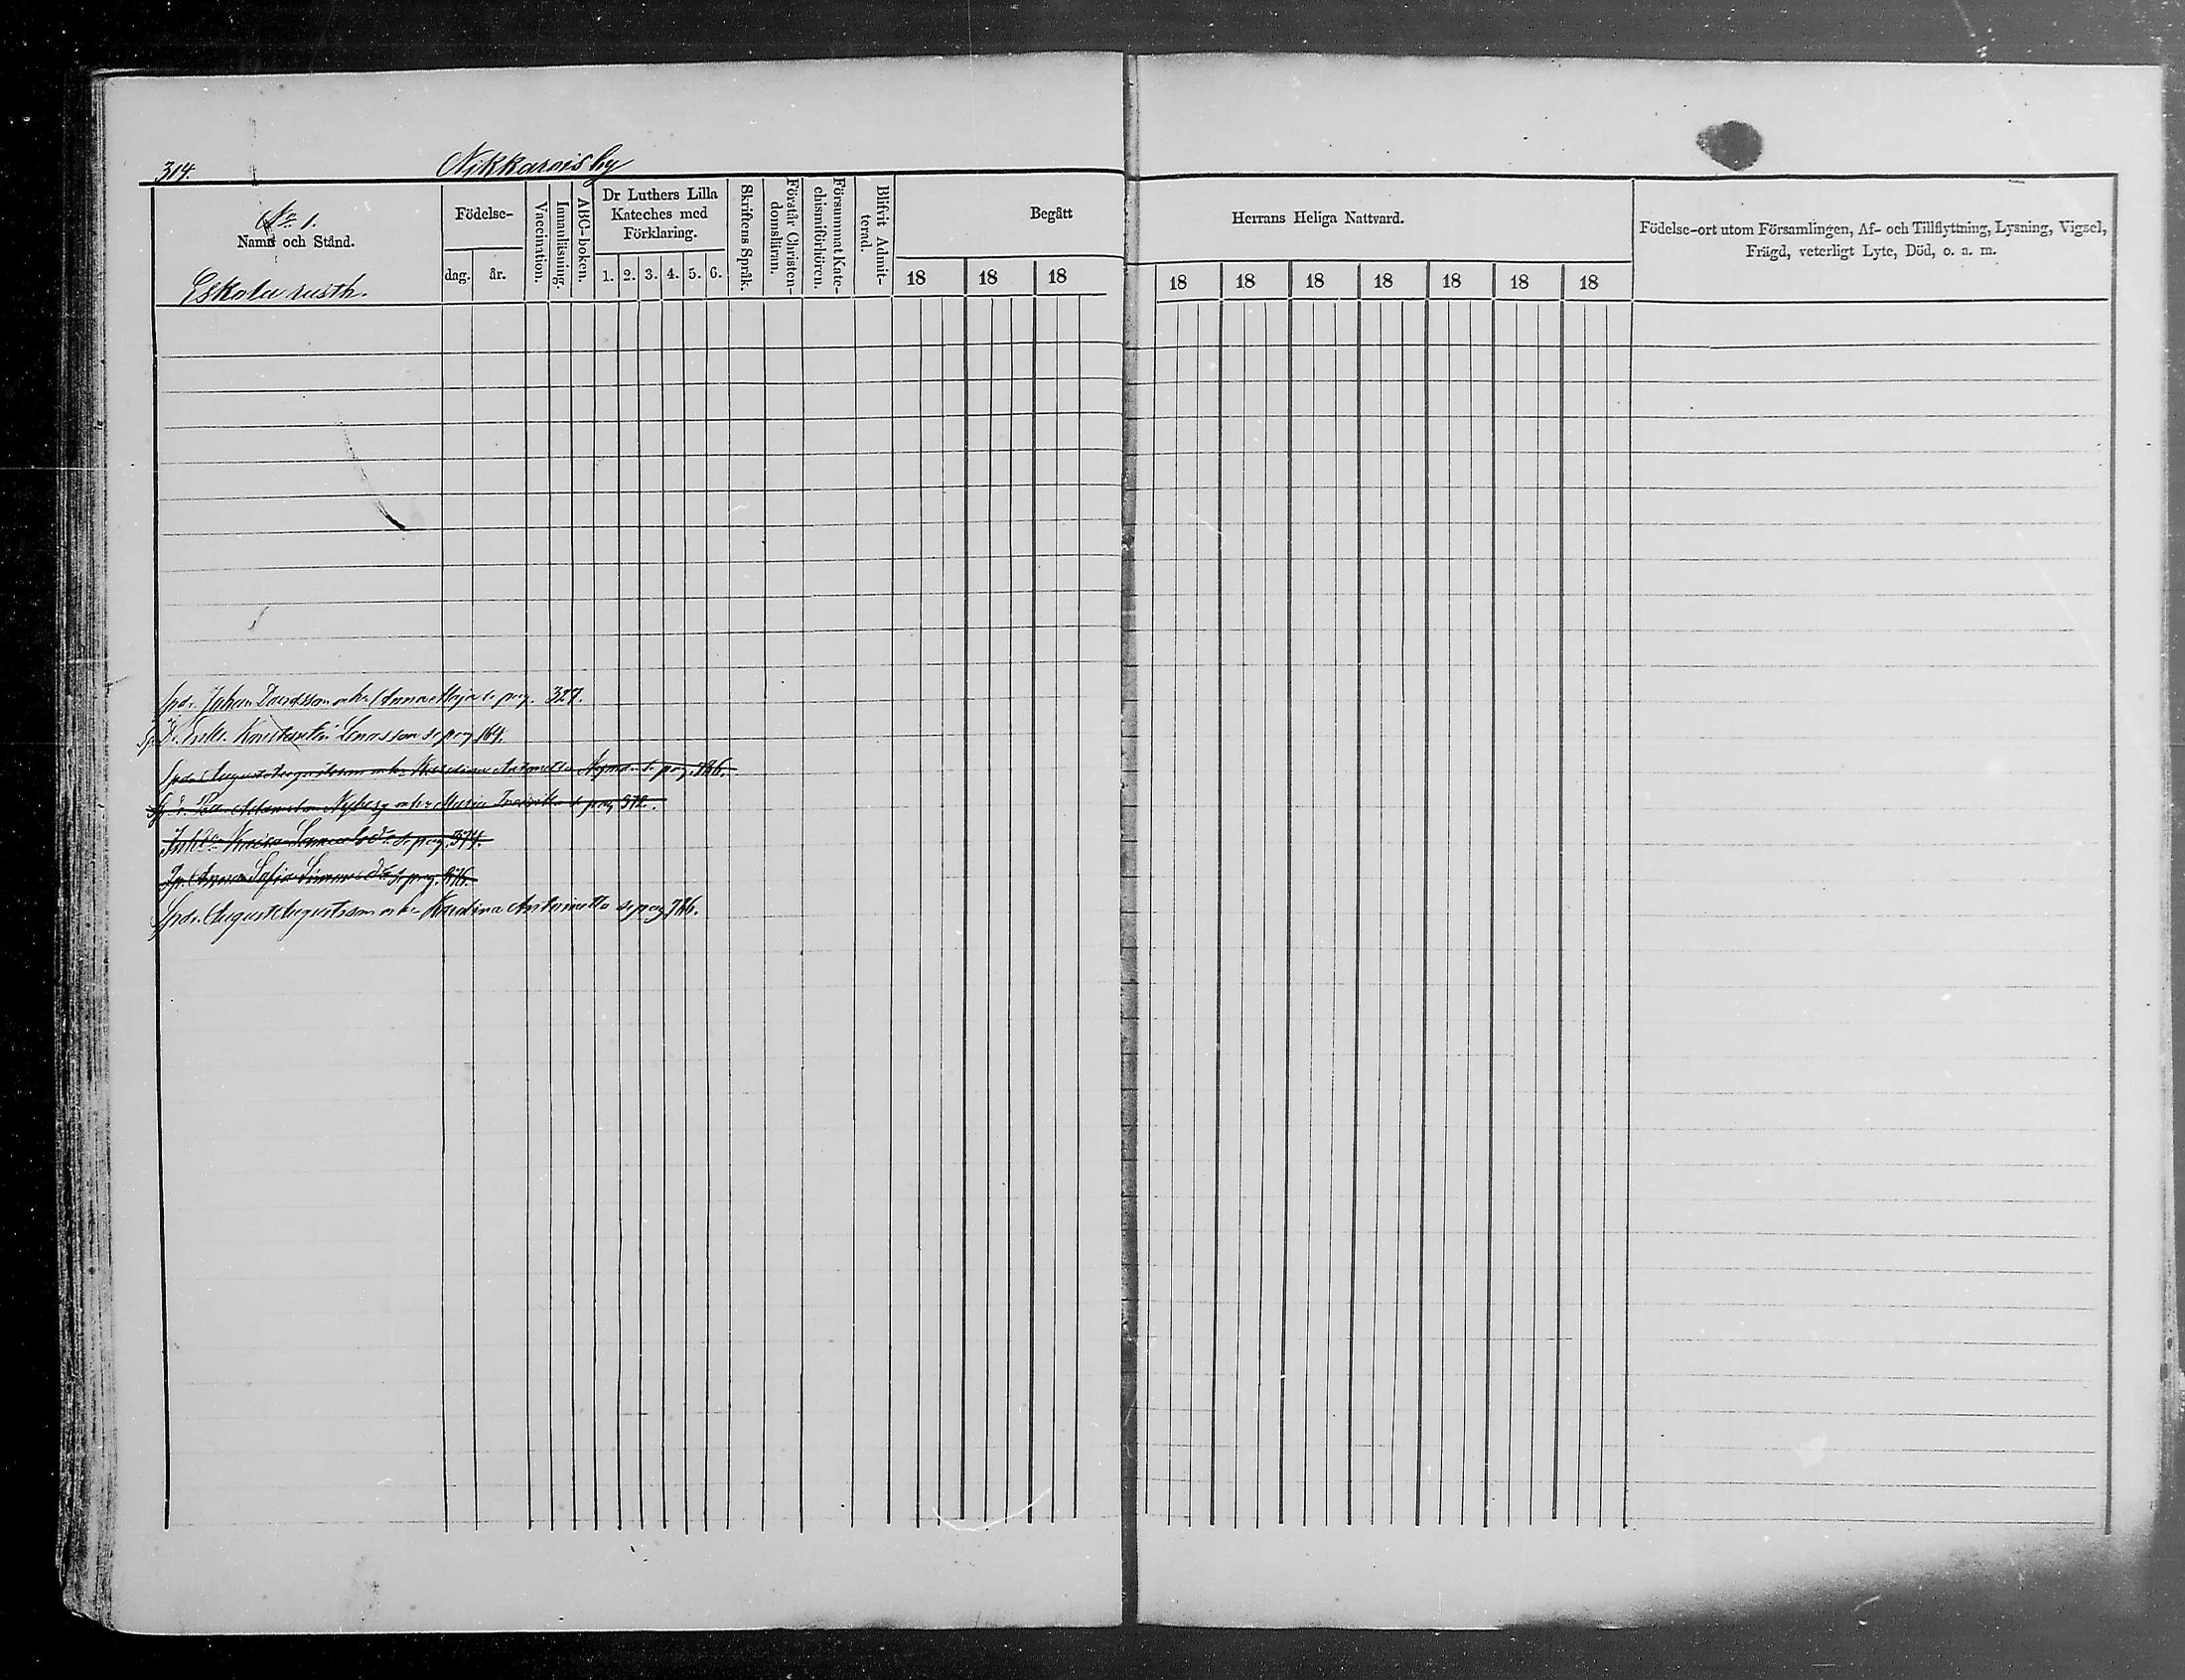 314.
Nikkarois by
No 1.
Namn och Stånd.
Eskola rusth.
Födelse-
dag.
år.
Vaccination.
Innanläsning.
ABC-boken.
Dr Luthers Lilla
Kateches med
Förklaring.
1. 2. 3. 4. 5. 6.
Skriftens Språk.
Förstår Christen-
domsläran.
Försummat Kate-
chismiförhören.
Blifvit Admit-
terad.
Begått
18 18 18
Herrans Heliga Nattvard.
18 18 18 18 18 18 18
Födelse-ort utom Församlingen, Af- och Tillflyttning, Lysning, Vigsel,
Frägd, veterligt Lyte, Död, o. a. m.
Johan Davidsson Anna Maja se pag. 327.
Konstantin Enosson se pag 164.
Karolina se pag. 286.
Nyberg Maria Fredrika se pag 372.
Kaisa se pag. 374.
Anna Sofia se pag. 376.
August Augustsson Karolina Antoinetta se pag 286.